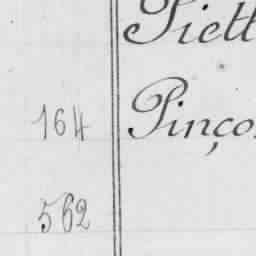 Piett
164 Pinço
562